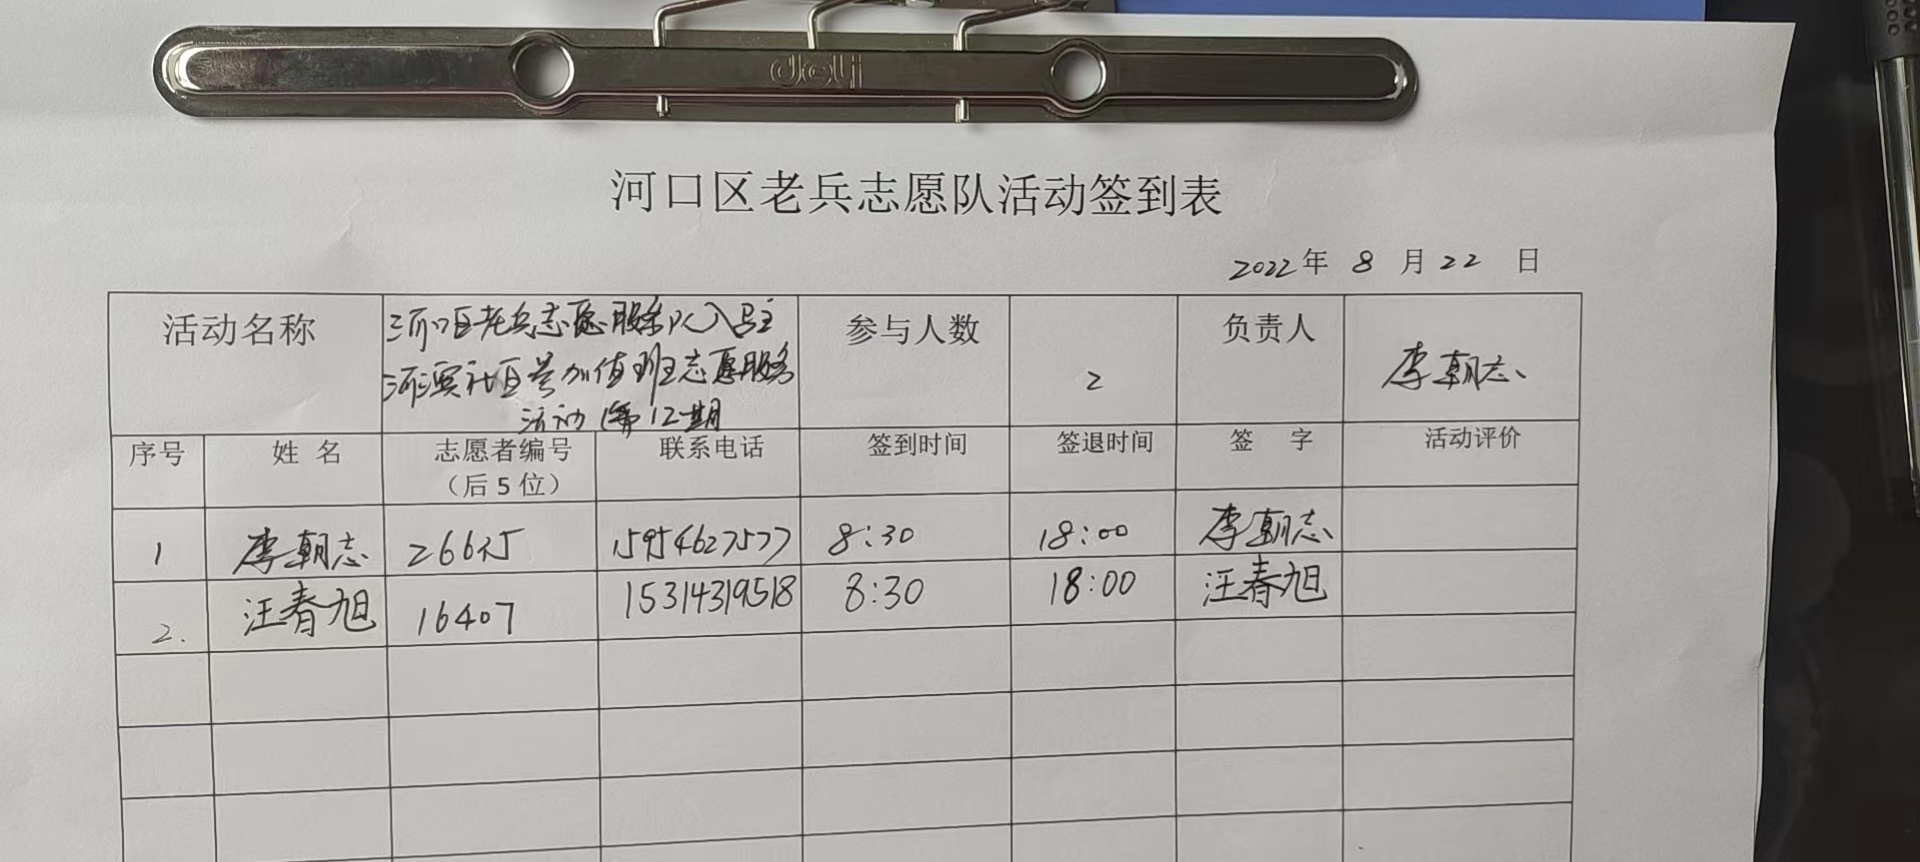 deli
河口区老兵志愿队活动签到表
2022年 8 月 22 日
活动名称 河口区老兵志愿服务队入驻 参与人数 2 负责人 李朝志
河滨社区参加值班志愿服务
活动 第12期
序号 姓名 志愿者编号 联系电话 签到时间 签退时间 签字 活动评价
(后5位)
1 李朝志 15954627577 8:30 18:00 李朝志
2. 汪春旭 16407 15314319518 8:30 18:00 汪春旭